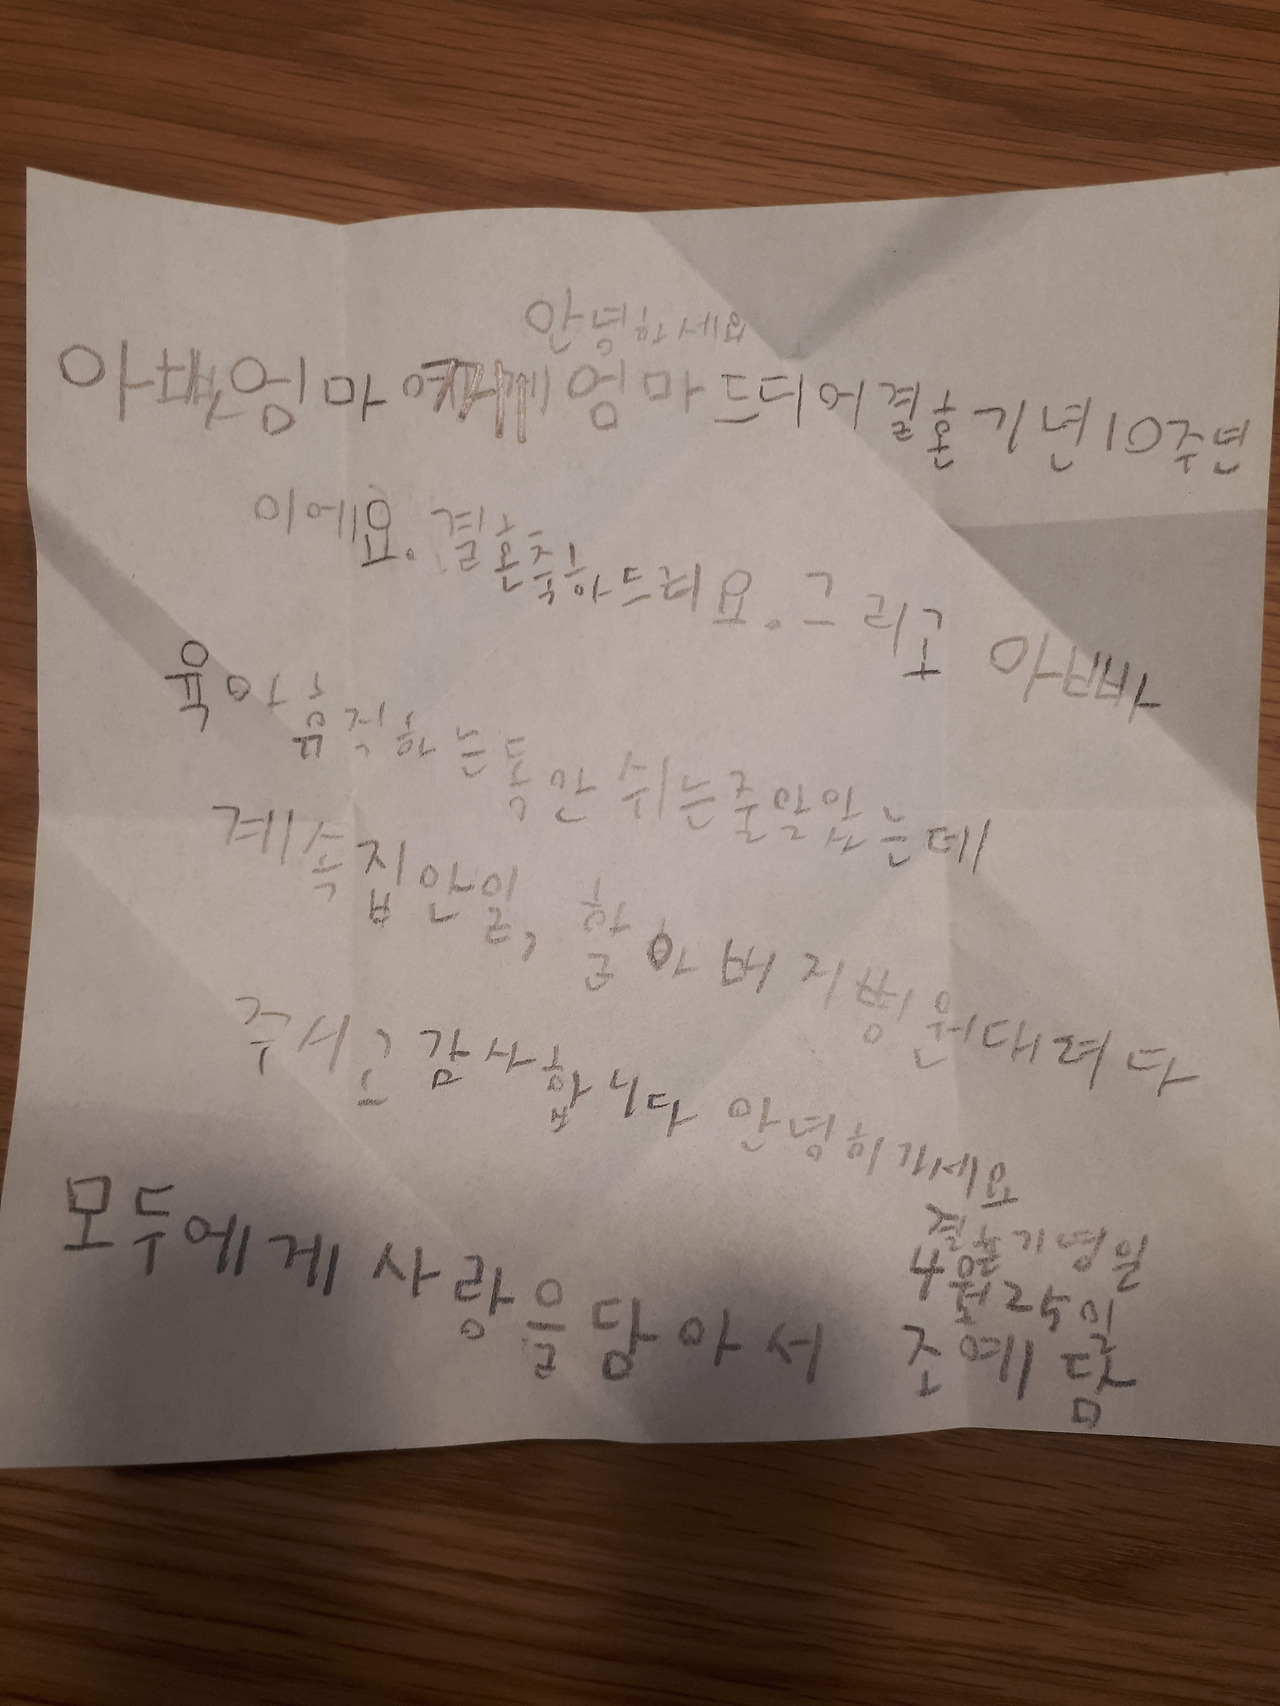 안녕하세요
아빠, 엄마 에게 엄마 드디어 결혼기년10주년
이에요. 결혼축하드려요. 그리고 아빠
육아휴직하는동안 쉬는줄알았는데
계속집안일, 할아버지병원대려다
주시고 감사합니다 안녕히가세요
결혼기녕일
4월25일
모두에게 사랑을담아서 조예담